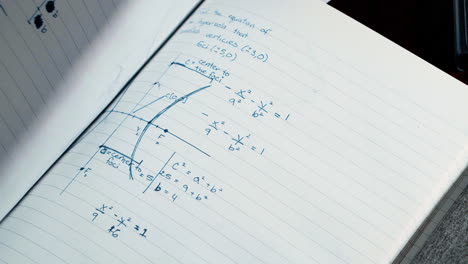 the equation of
hyperbola that
vertices (±3,0)
foci (±5,0)
C = center to
the foci
x²/a² - y²/b² = 1
x²/9 - y²/b² = 1
F
V
F
center to
foci
= 5
c² = a² + b²
25 = 9 + b²
b = 4
x²/9 - y²/16 = 1